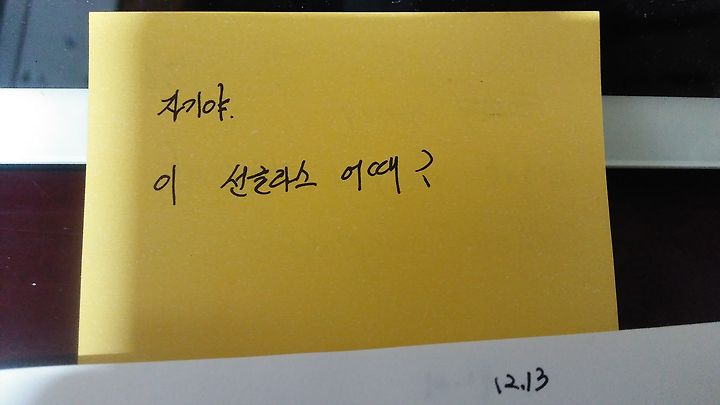 자기야.
이 선글라스 어때?
12.13